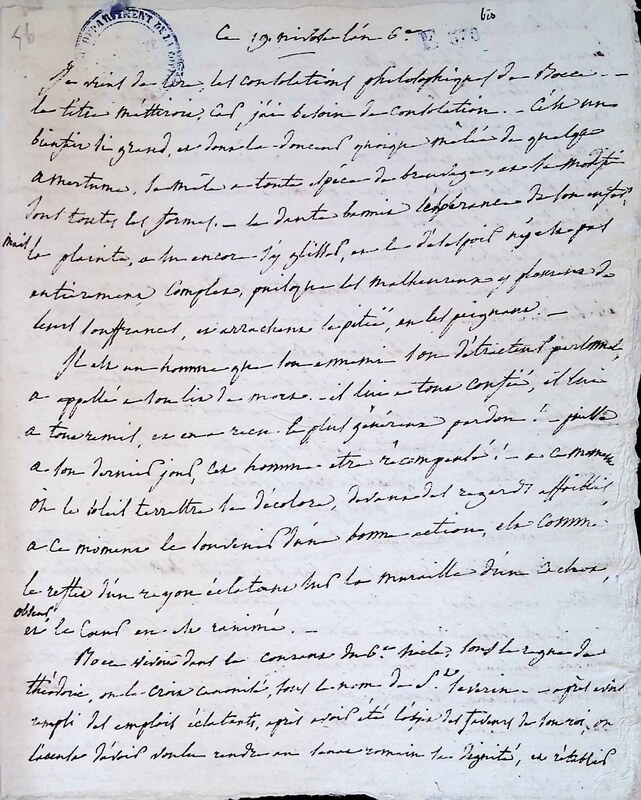 46
DEPARTMENT DE LA
Ce 19 nivose l'an 6e
Je viens de lire, les consolations philosophiques de Boece. -
le titre m'attiroit, car j'ai besoin de consolation. - C'est un
bienfait si grand, et dont la douceur quoique mêlée de quelque
amertume, se mêle a toute espèce de breuvage, et se modifie
sous toutes les formes. - le dante bannit l'espérance de son enfer,
mais la plainte, a su encore s'y glisser, et le désespoir n'y est pas
entièrement complet, puisque les malheureux y pleurent de
leurs souffrances, et arrachent la pitié, en les peignant. -
Il est un homme que son ennemi son détracteur personnel,
a appellé a son lit de mort. - il lui a tout confié, il lui
a tout remis, et en a recu le plus généreux pardon ! - puisse
a son dernier jour, cet homme etre récompensé ! - a ce moment
où le soleil terrestre se décolore, devant des regards affoiblis
a ce moment le souvenir d'une bonne action, est comme
le reflet d'un rayon éclatant sur la muraille d'un cachot,
obscur et le coeur en est ranimé. -
Boece vivoit dans le courant du 6e siecle, sous le regne de
théodoric, on le croit canonisé, sous le nom de St. Severin. - après avoir
rempli des emplois éclatants, après avoir été l'objet des faveurs de son roi, on
l'accusa d'avoir voulu rendre au senat romain sa dignité, et rétablir